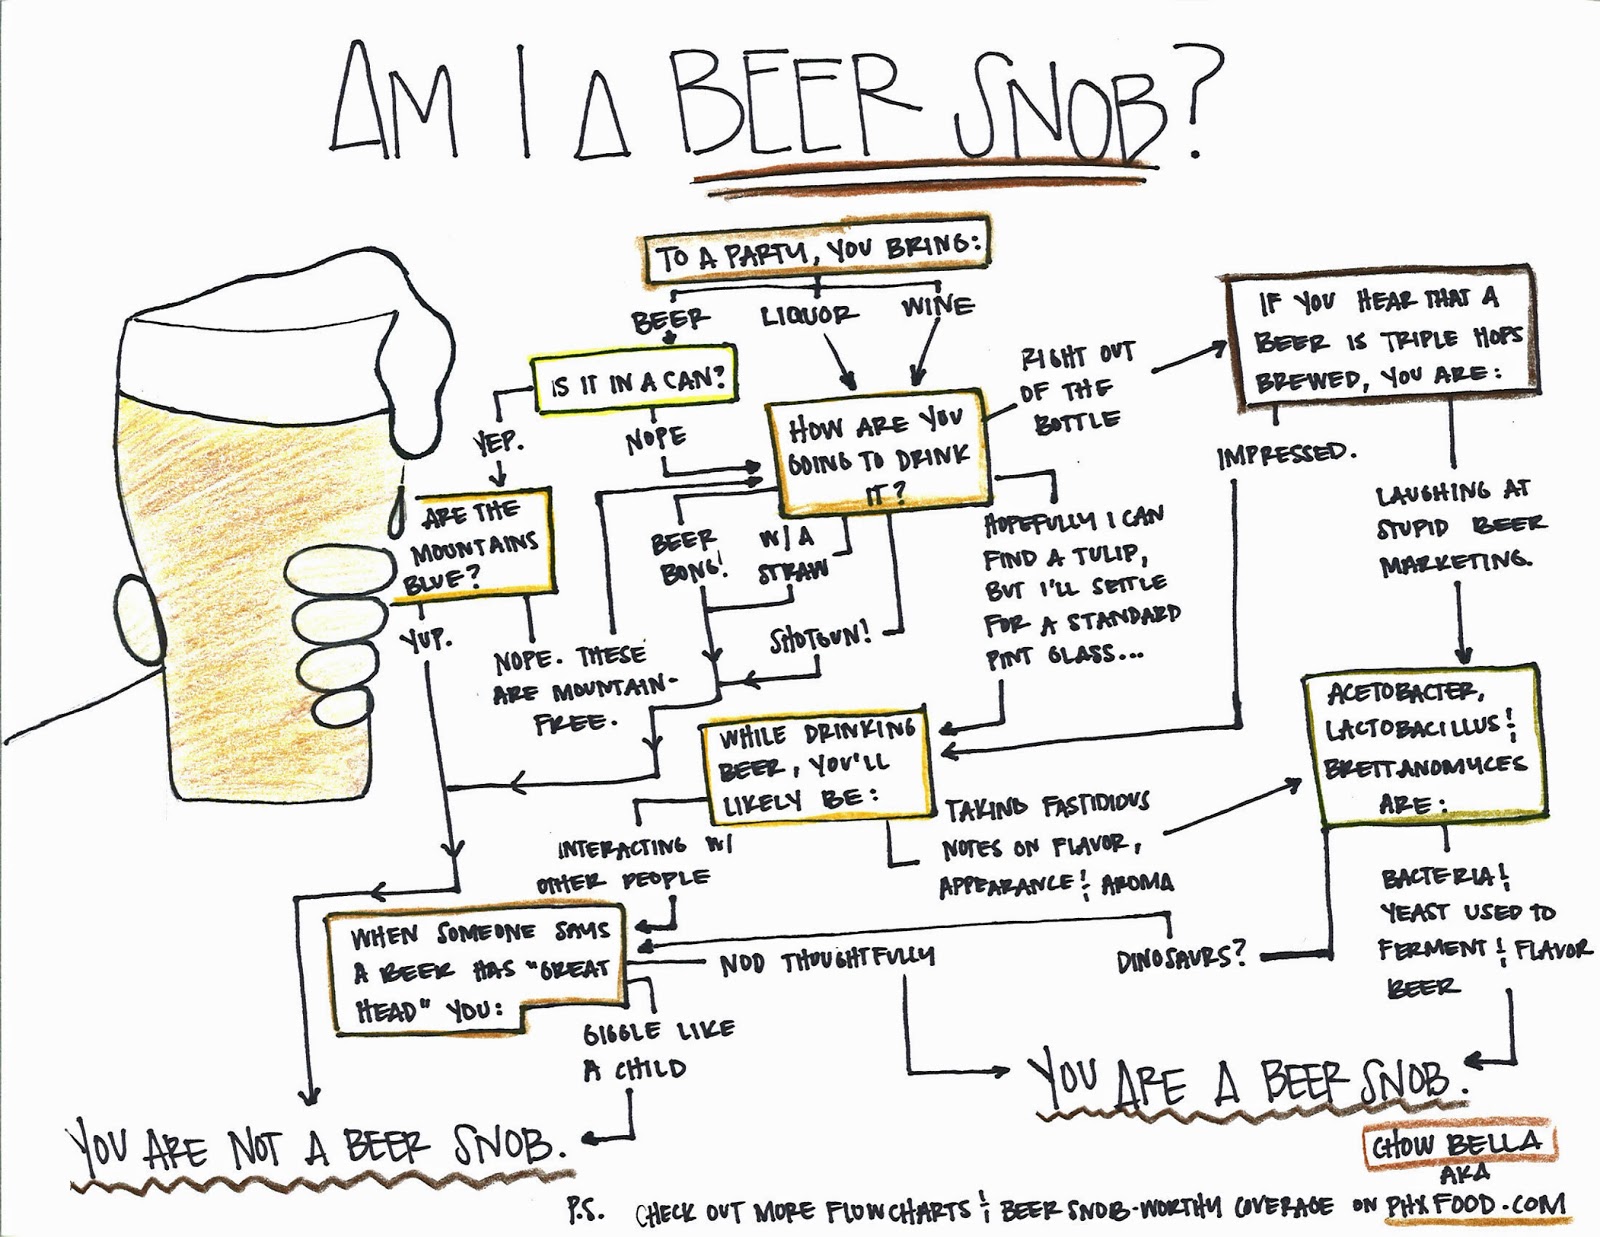 AM I A BEER SNOB?
TO A PARTY, YOU BRING:
BEER
LIQUOR
WINE
IS IT IN A CAN?
YEP.
NOPE
ARE THE
MOUNTAINS
BLUE?
YUP.
NOPE. THESE
ARE MOUNTAIN-
FREE.
HOW ARE YOU
GOING TO DRINK
IT?
BEER
BONG!
W/ A
STRAW
SHOTGUN!
HOPEFULLY I CAN
FIND A TULIP,
BUT I'LL SETTLE
FOR A STANDARD
PINT GLASS...
RIGHT OUT
OF THE
BOTTLE
IF YOU HEAR THAT A
BEER IS TRIPLE HOPS
BREWED, YOU ARE:
IMPRESSED.
LAUGHING AT
STUPID BEER
MARKETING.
WHILE DRINKING
BEER, YOU'LL
LIKELY BE:
INTERACTING W/
OTHER PEOPLE
TAKING FASTIDIOUS
NOTES ON FLAVOR,
APPEARANCE & AROMA
ACETOBACTER,
LACTOBACILLUS &
BRETTANOMYCES
ARE:
DINOSAURS?
BACTERIA &
YEAST USED TO
FERMENT & FLAVOR
BEER
WHEN SOMEONE SAYS
A BEER HAS "GREAT
HEAD" YOU:
NOD THOUGHTFULLY
GIGGLE LIKE
A CHILD
YOU ARE NOT A BEER SNOB.
YOU ARE A BEER SNOB.
CHOW BELLA
AKA
P.S. CHECK OUT MORE FLOWCHARTS & BEER SNOB-WORTHY COVERAGE ON PHXFOOD.COM